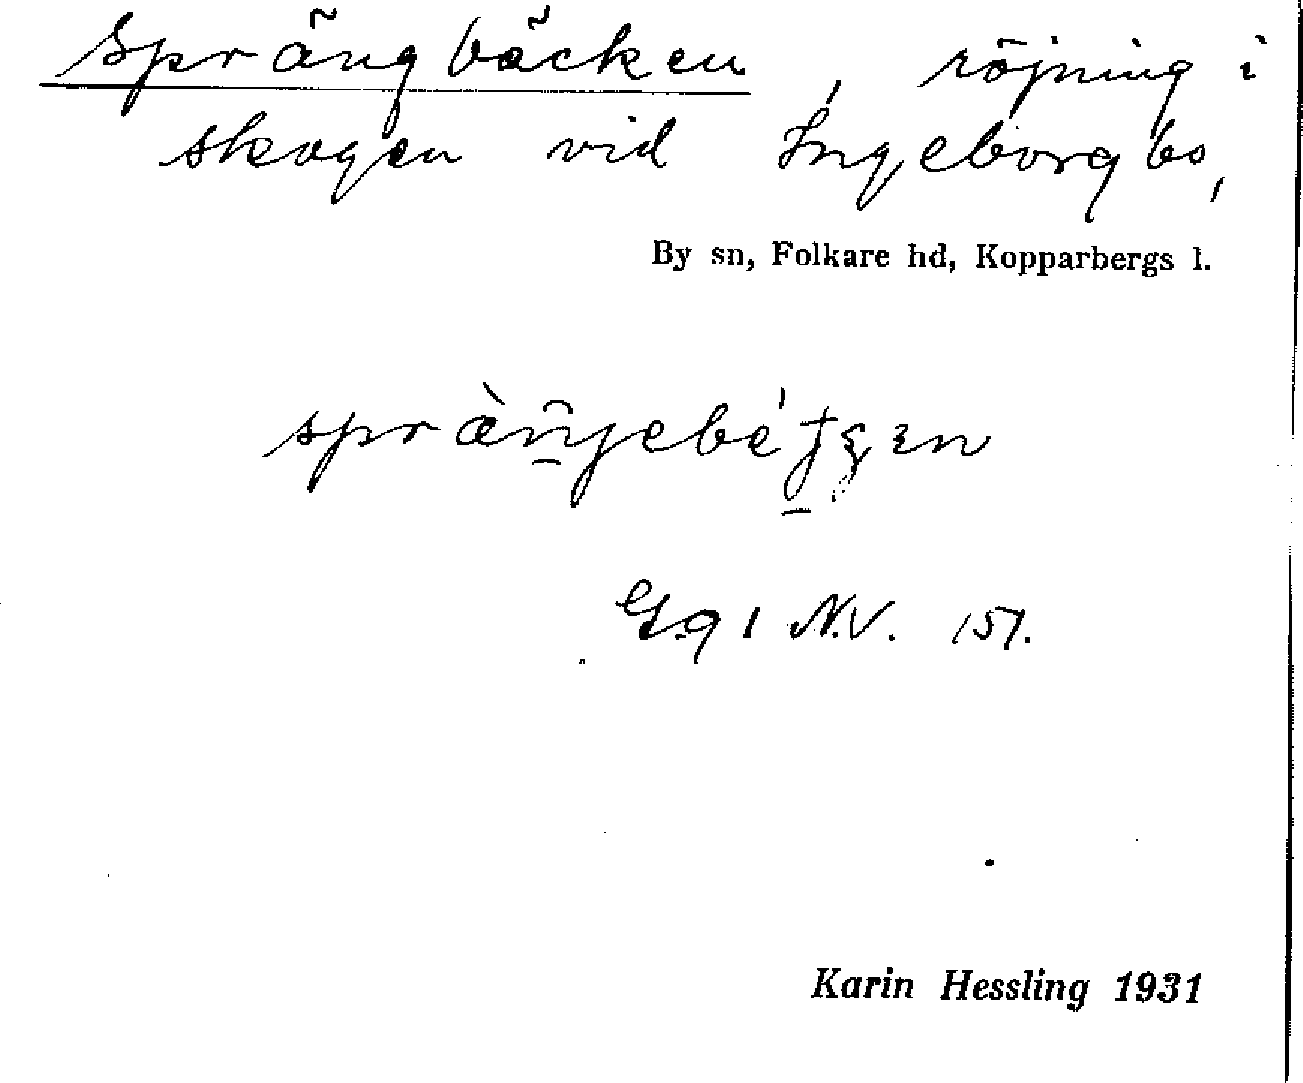 Sprängbäcken, röjning i
skogen vid Ingeborgbo,
By sn, Folkare hd, Kopparbergs l.
N.V. 157.
Karin Hessling 1931